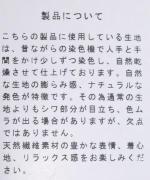 製品について
こちらの製品に使用している生地
は、昔ながらの染色機で人手と手
間をかけ少しずつ染色し、自然乾
燥させて仕上げております。自然
な生地の膨らみ感、ナチュラルな
発色が特徴です。その為通常の生
地よりもシワ部分が目立ち、色ム
ラが出る場合がありますが、欠点
ではありません。
天然繊維素材の豊かな表情、着心
地、リラックス感をお楽しみくだ
さい。